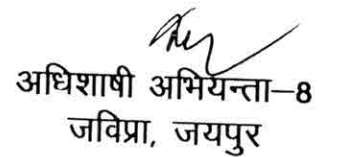 अधिशाषी अभियन्ता–8
जविप्रा, जयपुर